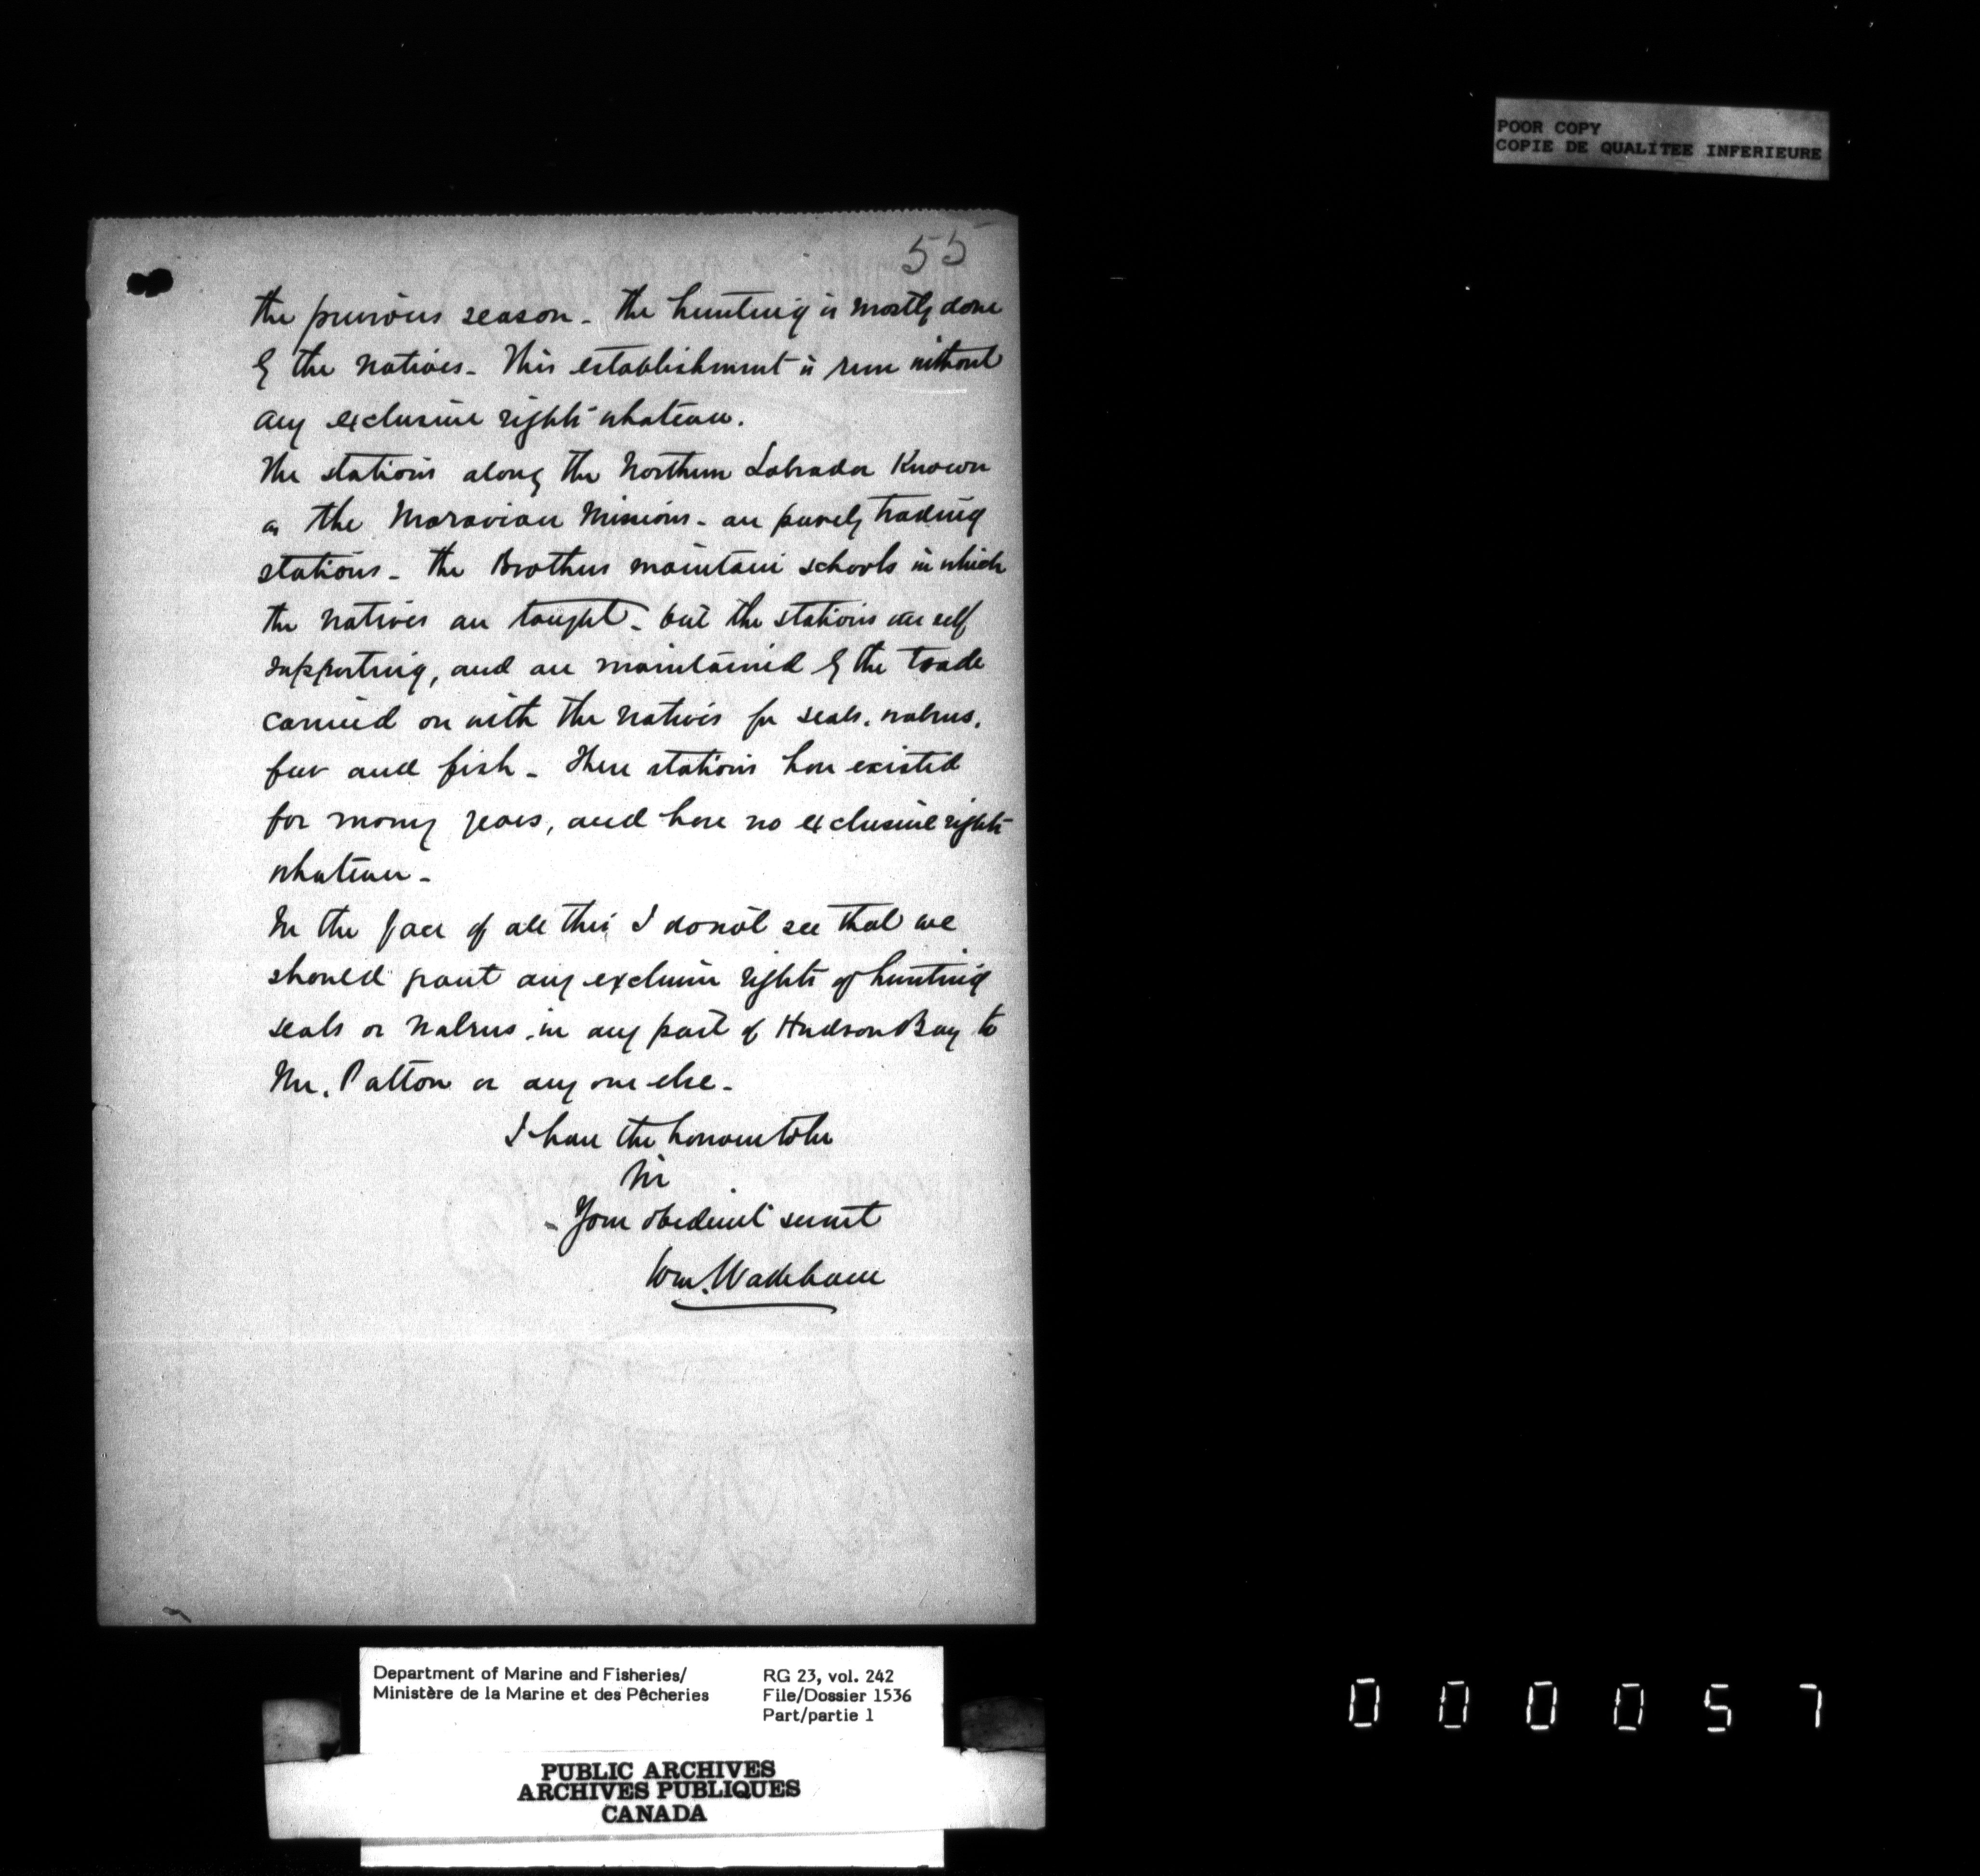 POOR COPY
COPIE DE QUALITEE INFERIEURE
55
the previous season - the hunting is mostly done
by the natives - This establishment is run without
any exclusive rights whatever.
The stations along the Northern Labrador Known
as the Moravian Missions - are purely trading
stations - the Brothers maintain schools in which
the natives are taught - but the stations are self
supporting, and are maintained by the trade
carried on with the natives for seals, walrus,
fur and fish - These stations have existed
for many years, and have no exclusive rights
whatever -
In the face of all this I do not see that we
should grant any exclusive rights of hunting
seals or walrus in any part of Hudson Bay to
Mr. Patton or any one else -
I have the honour to be
Sir
Your obedient servant
Wm. Wakeham
Department of Marine and Fisheries/ RG 23, vol. 242
Ministère de la Marine et des Pêcheries File/Dossier 1536
Part/partie 1
PUBLIC ARCHIVES
ARCHIVES PUBLIQUES
CANADA
000057